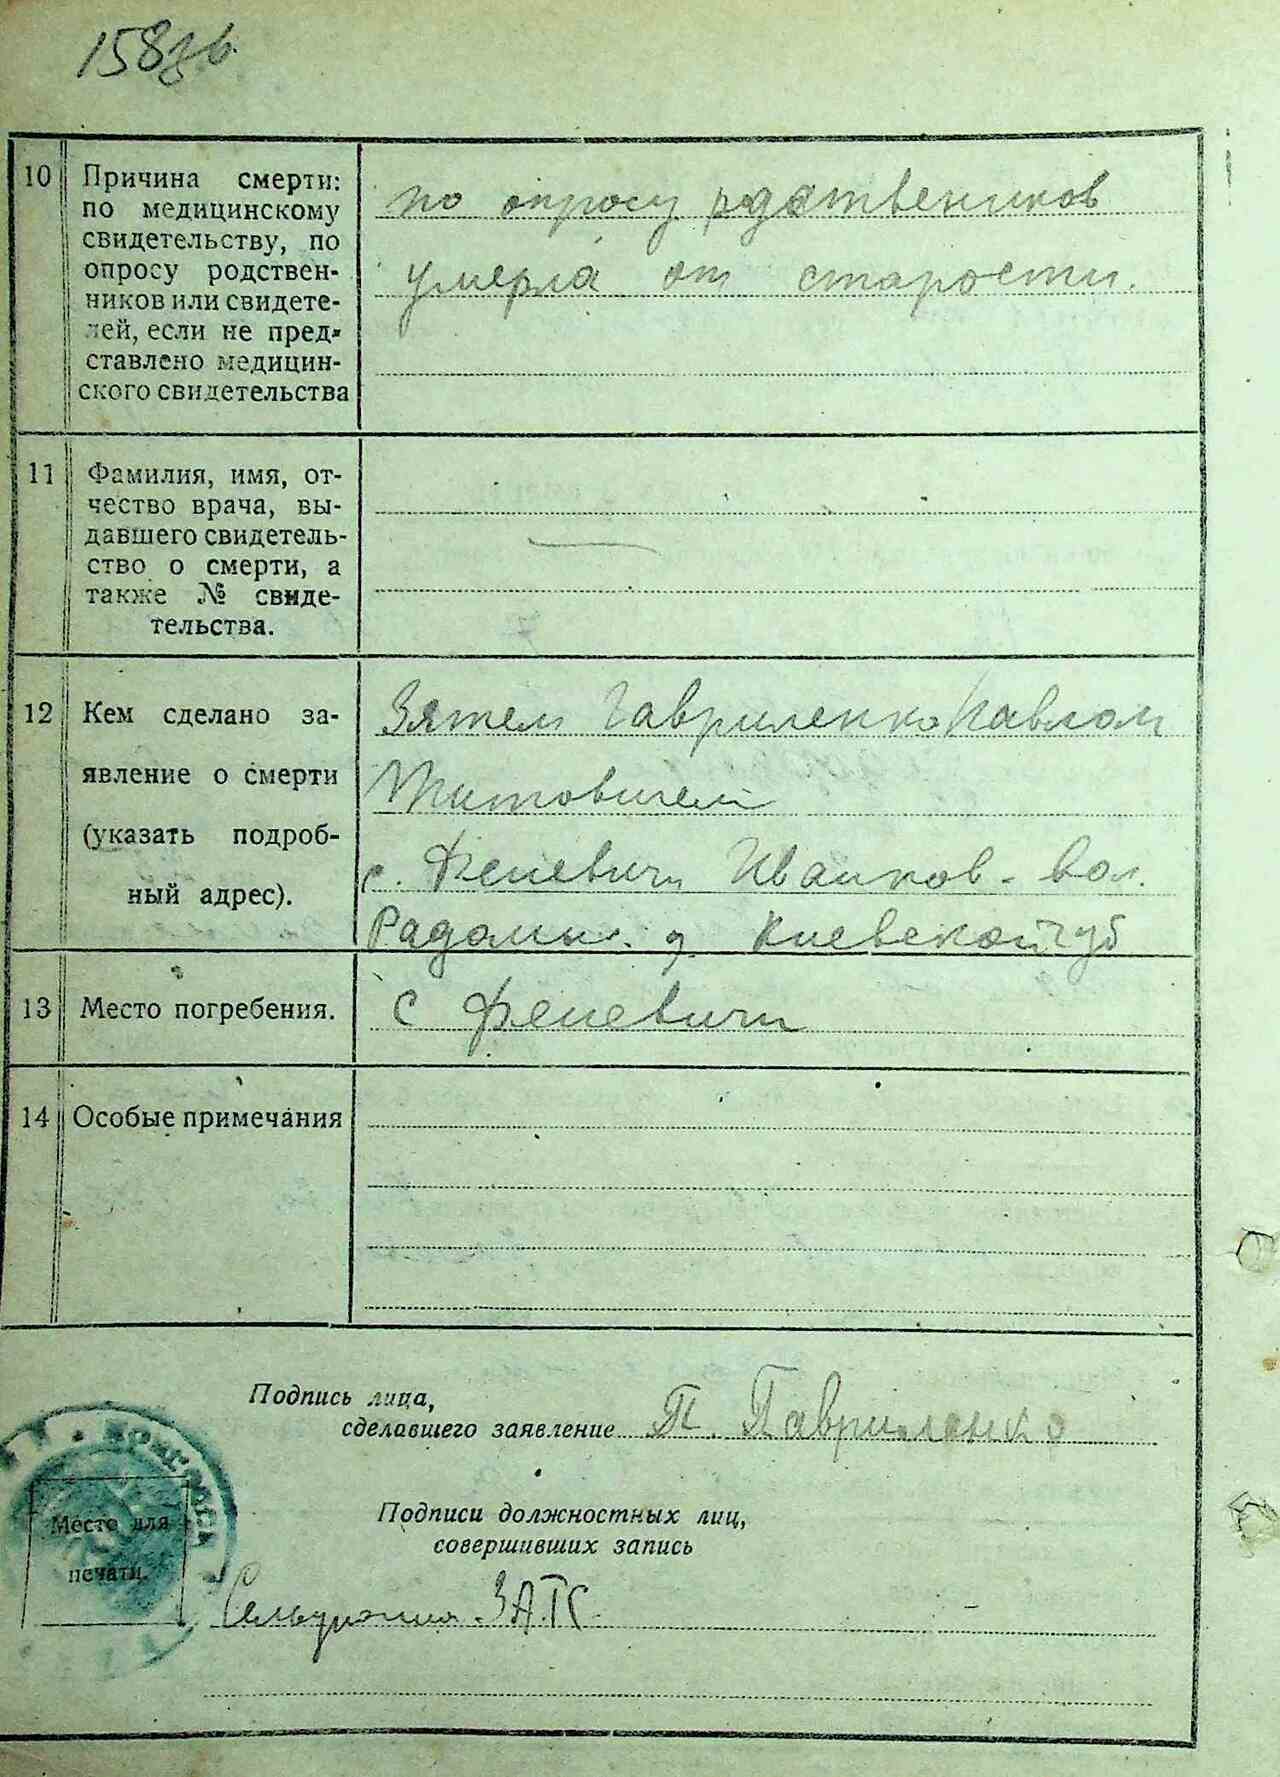 158 зв.
10 Причина смерти:
по медицинскому
свидетельству, по
опросу родствен-
ников или свидете-
лей, если не пред-
ставлено медицин-
ского свидетельства
по опросу родствеников
умерла от старости.
11 Фамилия, имя, от-
чество врача, вы-
давшего свидетель-
ство о смерти, а
также № свиде-
тельства.
12 Кем сделано за-
явление о смерти
(указать подроб-
ный адрес).
Зятем Гавриленко Павлом
Титовичем
с. Феневичи Иванков. вол.
Радомыс. у Киевской губ
13 Место погребения.
с Феневичи
14 Особые примечания
Подпись лица,
сделавшего заявление П. Гавриленко
Подписи должностных лиц,
совершивших запись
Место для
печати.
ЗАГС